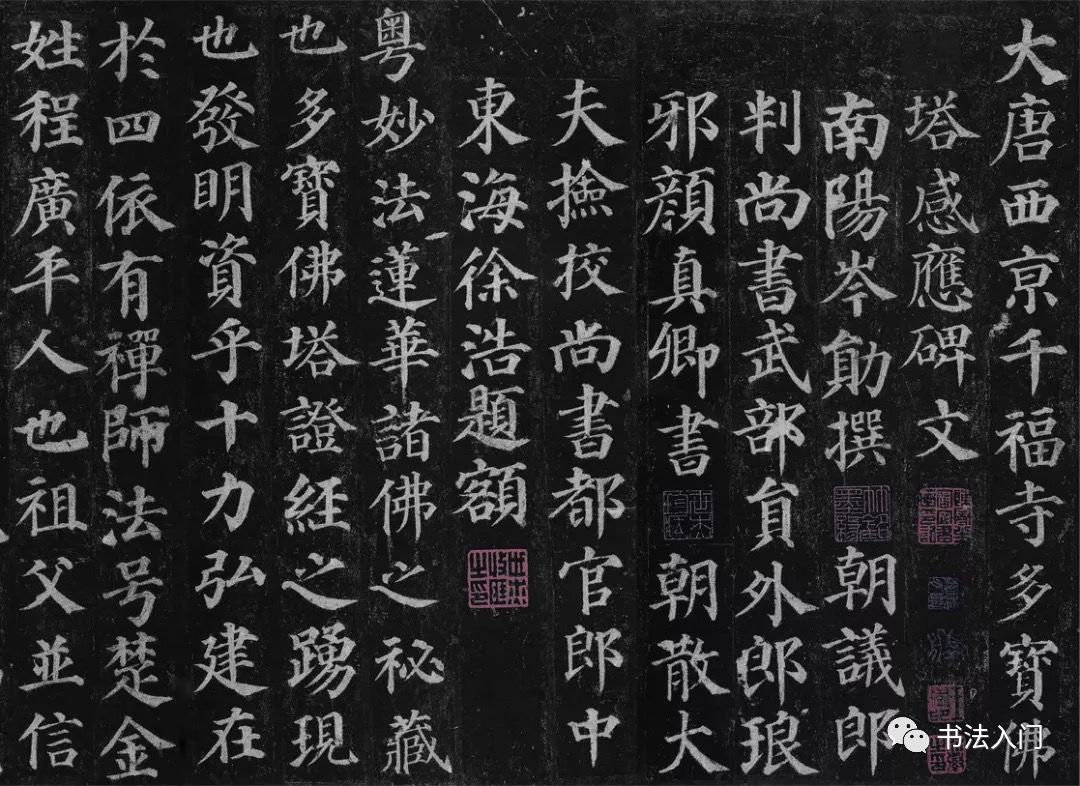 大唐西京千福寺多寶佛
塔感應碑文
南陽岑勛撰朝議郎
判尚書武部貟外郎琅
邪顏真卿書朝散大
夫撿挍尚書都官郎中
東海徐浩題額
粵妙法蓮華諸佛之秘藏
也多寶佛塔證經之踴現
也發明資乎十力弘建在
於四依有禪師法号楚金
姓程廣平人也祖父並信
书法入门